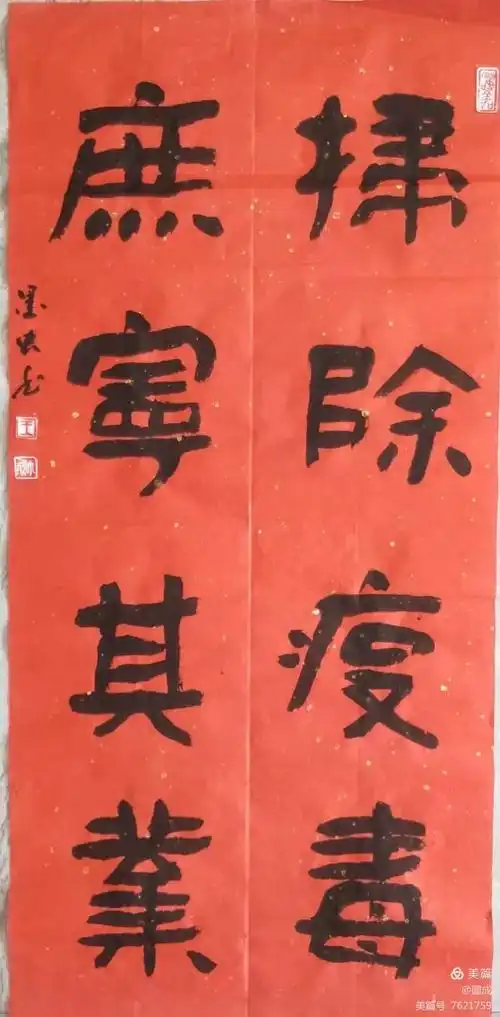 掃除疫毒
庶寧其業
墨
美篇
@圆成
美篇号 7621759